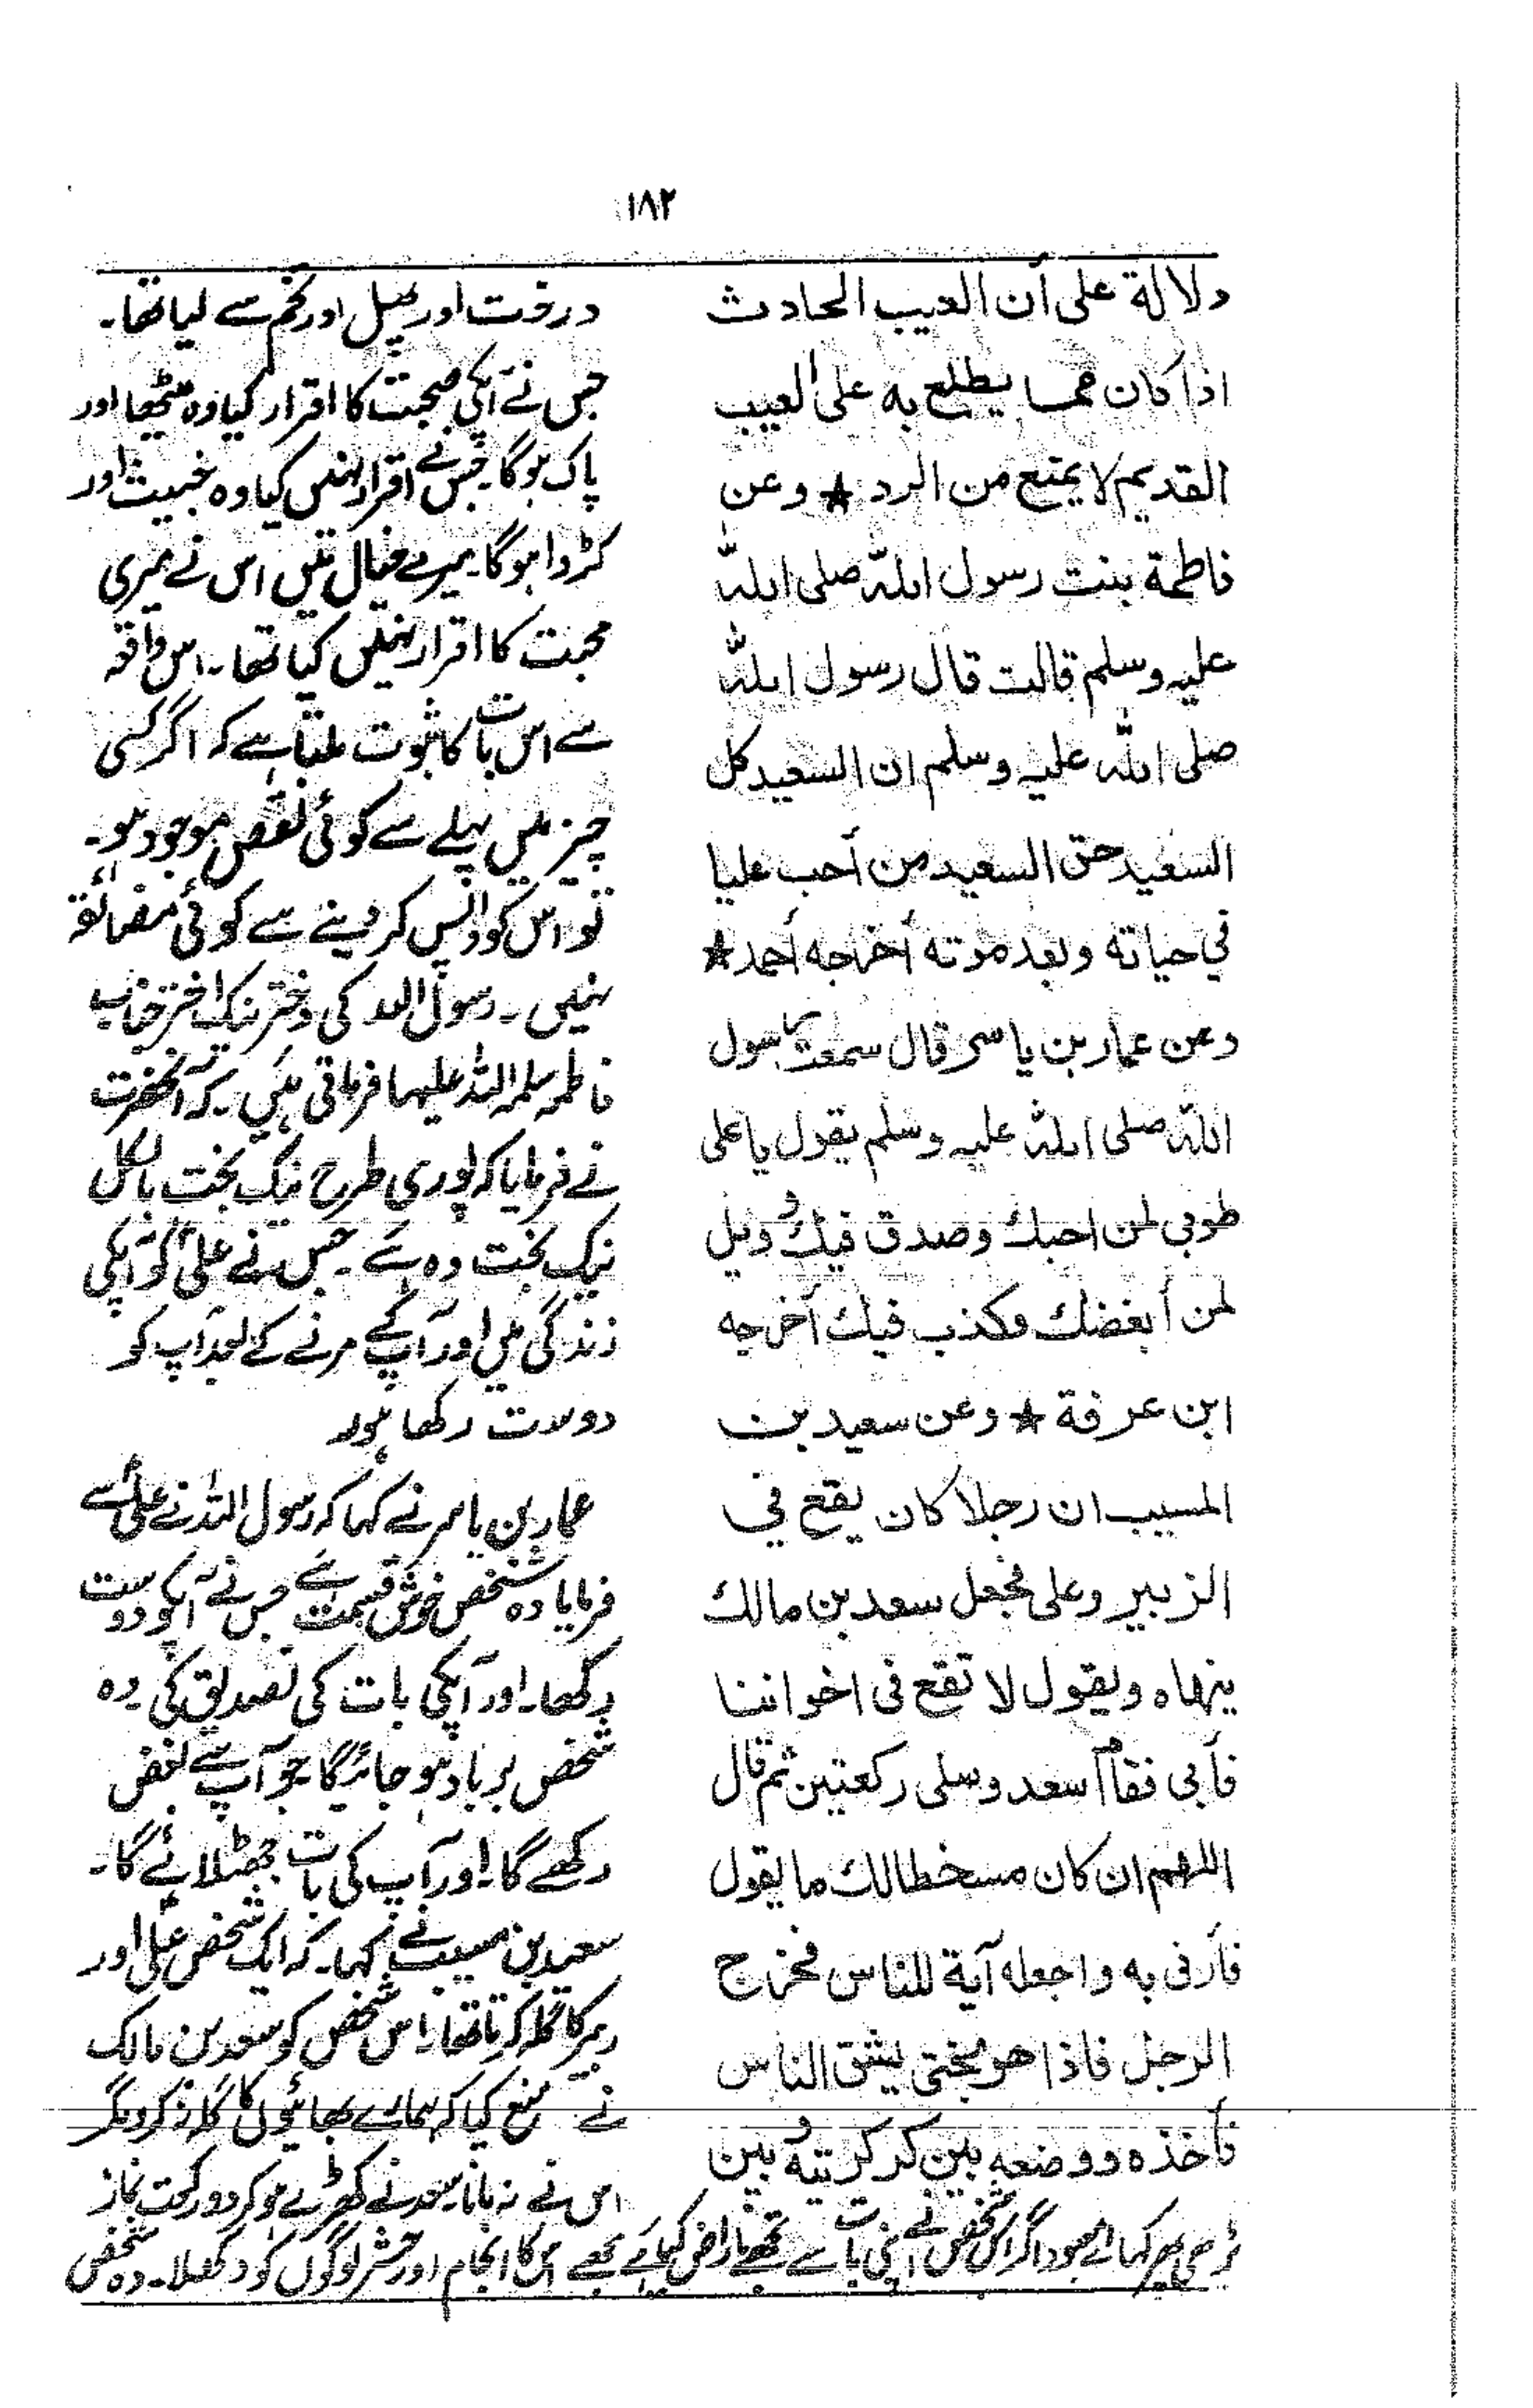 ۱۸۲
دلالة على أن العيب الحادث
اذا كان مما يطلع به على العيب
القديم لا يمتنع من الرد ★ وعن
فاطمة بنت رسول الله صلى الله
عليه وسلم قالت قال رسول الله
صلى الله عليه وسلم ان السعيد كل
السعيد حق السعيد من أحب عليا
في حياته وبعد موته أخرجه أحمد ★
وعن عمار بن ياسر قال سمعت رسول
الله صلى الله عليه وسلم يقول يا على
طوبى لمن احبك وصدق فيك وويل
لمن أبغضك وكذب فيك أخرجه
ابن عرفة ★ وعن سعيد بن
المسيب ان رجلا كان يقع في
الزبير وعلى فجعل سعد بن مالك
ينهاه ويقول لا تقع فى اخواننا
فأبى فقام سعد وسلى ركعتين ثم قال
اللهم ان كان مسخطا لك ما يقول
فأرنى به واجعله آية للناس فخرج
الرجل فاذا هو بختي يشق الناس
فأخذه ووضعه بين كركرته وبين
درخت اور پھل اور تخم سے لیا تھا۔
جس نے آپکی محبت کا اقرار کیا وہ میٹھا اور
پاک ہوگا جس نے اقرار نہیں کیا وہ خبیث اور
کڑوا ہوگا میرے خیال میں اس نے میری
محبت کا اقرار نہیں کیا تھا۔ اس واقعہ
سے اس بات کا ثبوت ملتا ہے کہ اگر کسی
چیز میں پہلے سے کوئی نقص موجود ہو۔
تو اس کو واپس کر دینے سے کوئی مضائقہ
نہیں۔ رسول اللہ کی دختر نیک اختر جناب
فاطمہ سلمہ اللہ علیہا فرماتی ہیں۔ کہ آنحضرت
نے فرمایا کہ پوری طرح نیک بخت بالکل
نیک بخت وہ ہے۔ جس نے علیؑ کو آپکی
زندگی میں اور آپکے مرنے کے بعد آپ کو
دوست رکھا ہو۔
عمار بن یاسر نے کہا کہ رسول اللہ نے علیؑ سے
فرمایا وہ شخص خوش قسمت ہے جس نے آپکو دوست
رکھا۔ اور آپکی بات کی تصدیق کی۔ وہ
شخص برباد ہو جائیگا جو آپ سے بغض
رکھے گا۔ اور آپ کی بات جھٹلائے گا۔
سعید بن مسیب نے کہا۔ کہ ایک شخص علی اور
زبیر کا گلہ کرتا تھا۔ اس شخص کو سعد بن مالک
نے منع کیا کہ ہمارے بھائیوں کا گلہ نہ کرو مگر
اس نے نہ مانا۔ سعد نے کھڑے ہو کر دو رکعت نماز
پڑھی پھر کہا اے معبود اگر اس شخص نے اپنی بات سے تجھے ناراض کیا ہے مجھے اس کا انجام اور حشر لوگوں کو دکھلا۔ وہ شخص